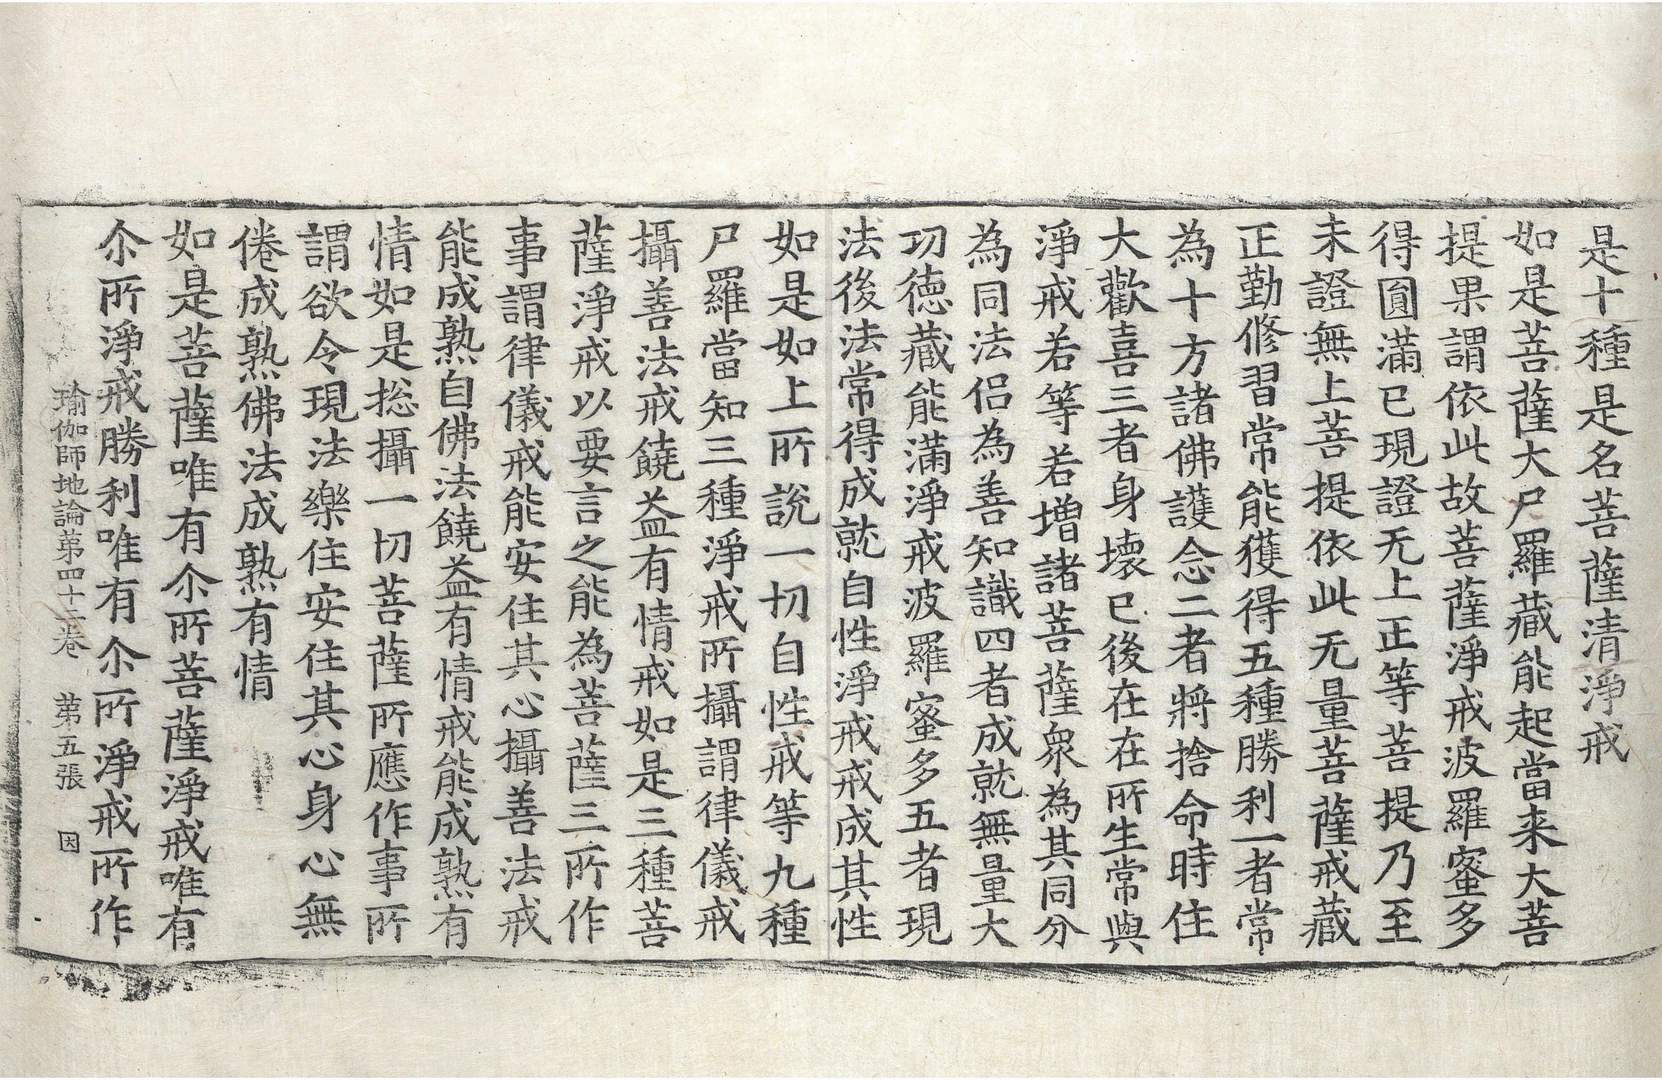 是十種是名菩薩清淨戒
如是菩薩大尸羅藏能起當来大菩
提果謂依此故菩薩淨戒波羅蜜多
得圎滿已現證无上正等菩提乃至
未證無上菩提依此无量菩薩戒藏
正勤修習常能獲得五種勝利一者常
為十方諸佛護念二者將捨命時住
大歡喜三者身壞已後在在所生常與
淨戒若等若增諸菩薩衆為其同分
為同法侣為善知識四者成就無量大
功德藏能滿淨戒波羅蜜多五者現
法後法常得成就自性淨戒戒成其性
如是如上所說一切自性戒等九種
尸羅當知三種淨戒所攝謂律儀戒
攝善法戒饒益有情戒如是三種菩
薩淨戒以要言之能為菩薩三所作
事謂律儀戒能安住其心攝善法戒
能成熟自佛法饒益有情戒能成熟有
情如是捴攝一切菩薩所應作事所
謂欲令現法樂住安住其心身心無
倦成熟佛法成熟有情
如是菩薩唯有尒所菩薩淨戒唯有
尒所淨戒勝利唯有尒所淨戒所作
瑜伽師地論苐四十二卷　苐五張　因